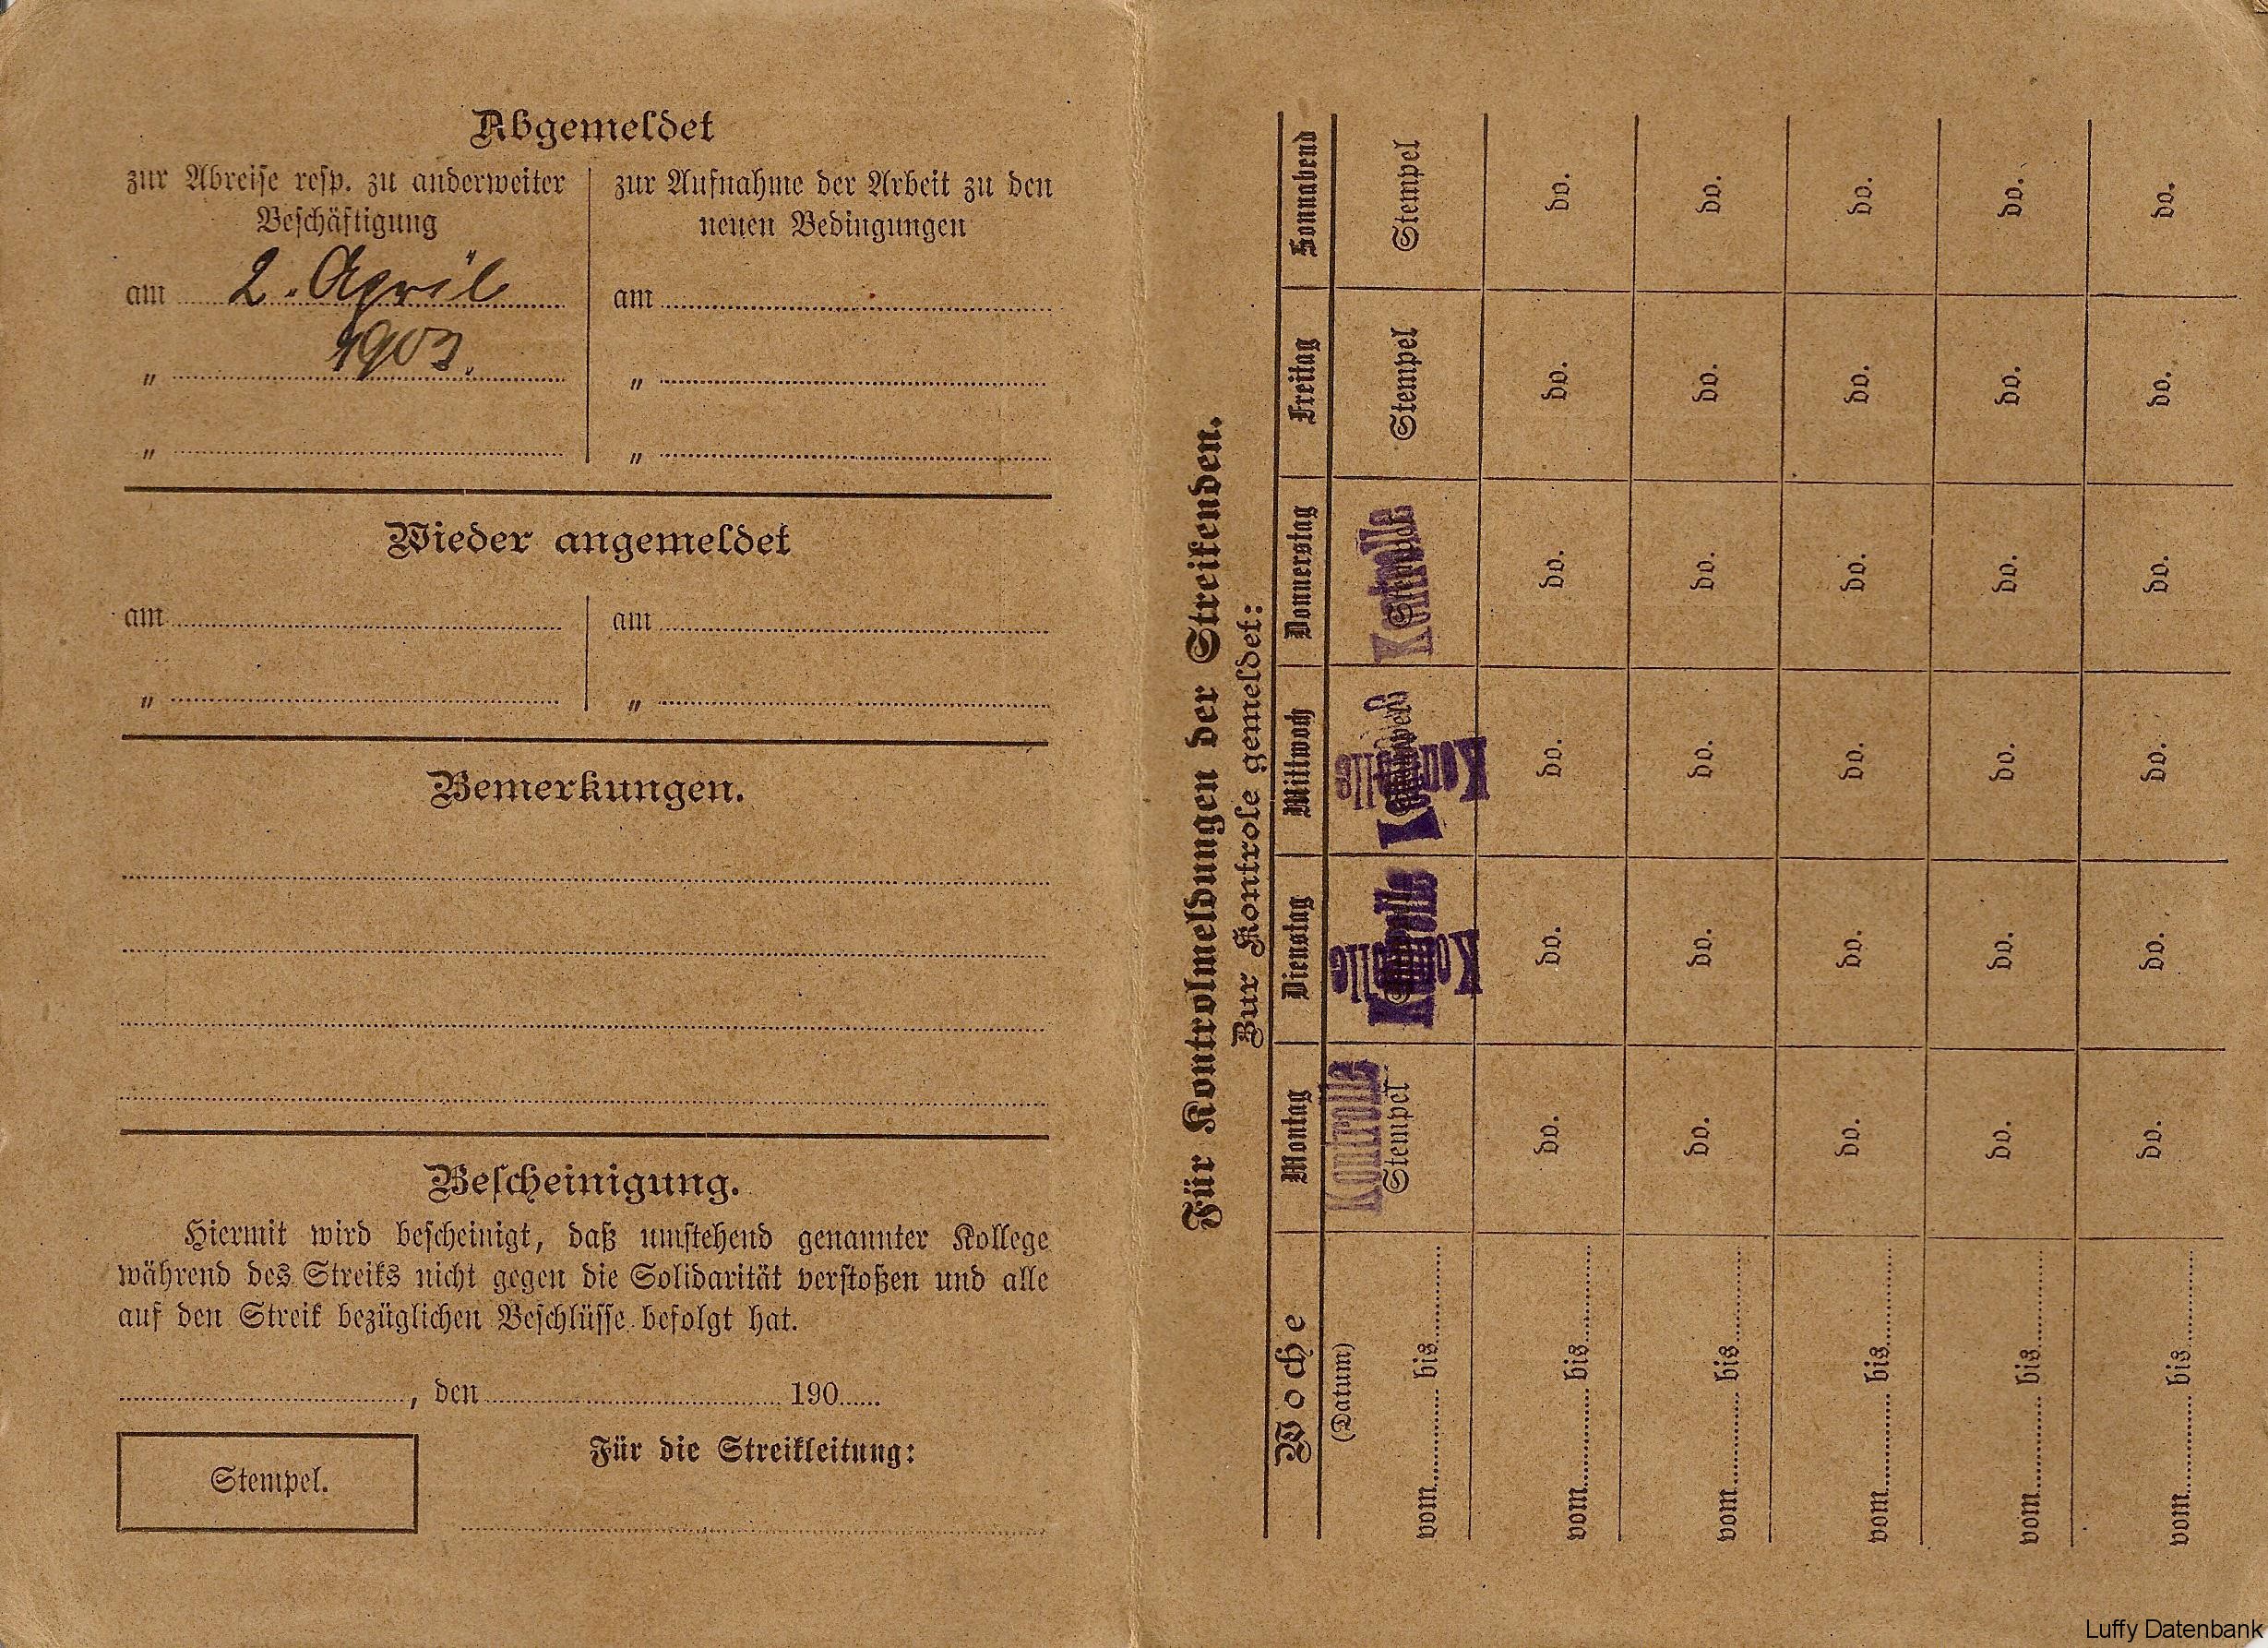 Abgemeldet
zur Abreise resp. zu anderweiter
Beschäftigung
am 2. April
„ 1903.
„
zur Aufnahme der Arbeit zu den
neuen Bedingungen
am
„
„
Wieder angemeldet
am
„
am
„
Bemerkungen.
Bescheinigung.
Hiermit wird bescheinigt, daß umstehend genannter Kollege
während des Streiks nicht gegen die Solidarität verstoßen und alle
auf den Streik bezüglichen Beschlüsse befolgt hat.
, den 190
Stempel.
Für die Streikleitung:
Für Kontrolmeldungen der Streikenden.
Zur Kontrole gemeldet:
Woche Montag Dienstag Mittwoch Donnerstag Freitag Sonnabend
(Datum)
Kontrolle Kontrolle Kontrolle Kontrolle Kontrolle Kontrolle
vom bis Stempel Stempel Stempel Stempel Stempel Stempel
vom bis do. do. do. do. do. do.
vom bis do. do. do. do. do. do.
vom bis do. do. do. do. do. do.
vom bis do. do. do. do. do. do.
vom bis do. do. do. do. do. do.
Luffy Datenbank